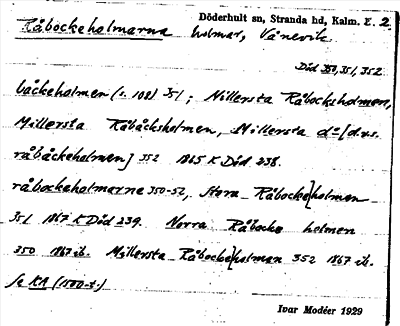 Råbockeholmarna Döderhult sn, Stranda hd, Kalm. l. 2.
holmar, Vånevik.
Död 350, 351, 352
båckeholmen (s. 108) 351; Nillersta Råbocksholmen,
Millersta Råbåcksholmen, Millersta d:o [d.v.s.
råbåckeholmen] 352 1865 K Död 238.
råbockeholmarne 350-52, Stora Råbocke holmen
351 1867 K Död 239. Norra Råbocke holmen
350 1867 ib. Millersta Råbocke holmen 352 1867 ib.
Se KA (1500-t.)
Ivar Modéer 1929